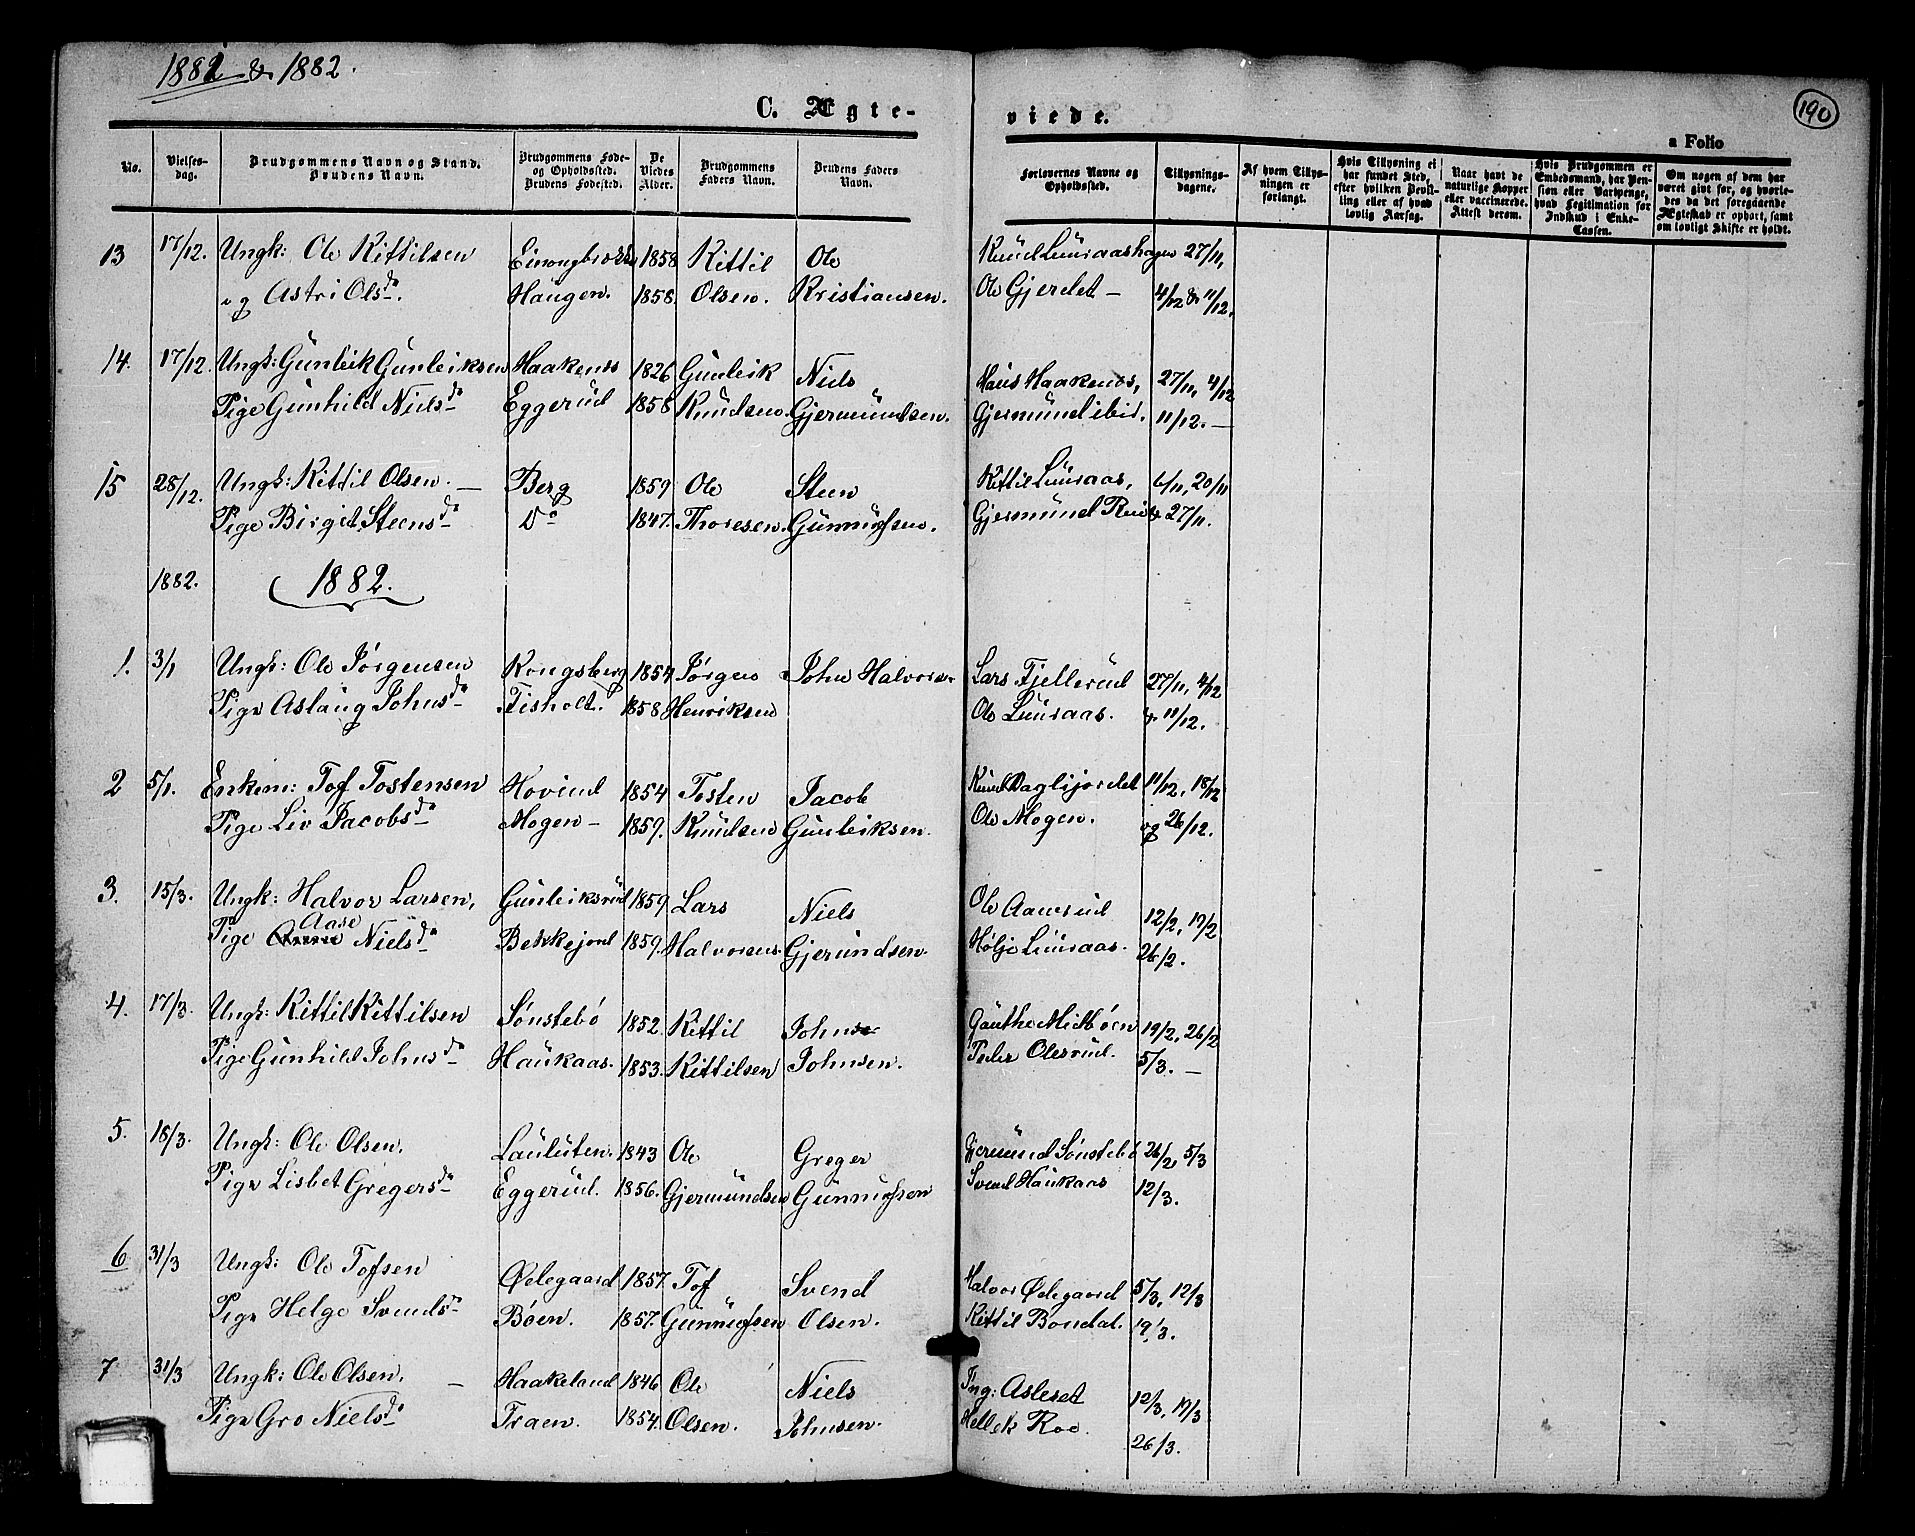 1881 & 1882.
190
C. Ægte-
viede.
a Folio
No.
Vielses-
dag.
Brudgommens Navn og Stand.
Brudens Navn.
Brudgommens Føde-
og Opholdssted.
Brudens Fødested.
De
Viedes
Alder.
Brudgommens
Faders Navn.
Brudens Faders
Navn.
Forlovernes Navne og
Opholdssted.
Tillysnings-
dagene.
Af hvem Tillys-
ningen er
forlangt.
Hvis Tillysning ei
har fundet Sted,
efter hvilken Bevil-
ling eller af hvad
lovlig Aarsag.
Naar havt de
naturlige Kopper
eller vaccinerede.
Attest derom.
Hvis Brudgommen er
Embedsmand, har Pen-
sion eller Vartpenge,
hvad Legitimation for
Indskud i Enke-
Cassen.
Om nogen af dem har
været givt før, og hvorle-
des da det foregaaende
Ægteskab er ophørt, samt
om lovligt Skifte er holdt.
13 17/12. Ungk: Ole Kittilsen 1858 Kittil Ole Knud Luuraashagen 27/11,
og Astri Olsd. Haugen. 1858. Olsen. Kristiansen. Ole Gjerdet - 4/12 & 11/12.
14. 17/12. Ungk: Gunleik Gunleiksen Haakenes 1826 Gunleik Niels Hans Haakenæs, 27/11, 4/12
Pige Gunhild Nielsd Eggerud 1858 Knudsen. Gjermundsen. Gjermund ibid. 11/12. -
15 28/12. Ungk: Kittil Olsen. - Berg 1859 Ole Steen Kittil Luuraas, 6/11, 20/11
Pige Birgit Steensd Do 1847. Thoresen. Gunnufsen. Gjermund 27/11.
1882. 1882.
1. 3/1 Ungk: Ole Jørgensen Kongsberg 1854 Jørgen John Halvorsen Lars Fjellerud 27/11, 4/12
Pige Aslaug Johnsd Tisholt. 1858 Henriksen Ole Luuraas. & 11/12.
2 5/1. Enkem: Tof Tostensen Hovind 1854 Tosten Jacob Knud Daglijordet 11/12, 18/12
Pige Liv Jacobsd Mogen - 1859. Knudsen Gunleiksen. Ole Mogen. og 26/12.
3. 15/3. Ungk: Halvor Larsen, Gunleiksrud 1859 Lars Niels Ole Aamrud 12/2, 19/2
Pige Aase Nielsd Bekkejord 1859. Halvorsen. Gjerundsen. Hølje Luuraas. 26/2.
4. 17/3. Ungk: Kittil Kittilsen Sønstebø 1852. Kittil John Gauthe Midbøen 19/2, 26/2
Pige Gunhild Johnsd Haukaas. 1853. Kittilsen Johnsen. Peder Olesrud. 5/3. -
5. 18/3. Ungk: Ole Olsen. Lauluten. 1843 Ole Greger Gjermund Sønstebø 26/2, 5/3
Pige Lisbet Gregersd Eggerud. 1856. Gjermundsen Gunnufsen Svend Haukaas 12/3.
6 31/3 Ungk: Ole Tofsen Ødegaard 1857. Tof Svend Halvor Ødegaard 5/3, 12/3
Pige Helge Svendsd Bøen. 1857. Gunnufsen Olsen. Kittil Bondal. 19/3.
7 31/3 Ungk: Ole Olsen. - Haakeland 1846 Ole Niels Ing: Asleset 12/3, 19/3
Pige Gro Nielsd Traen. 1854. Olsen. Johnsen. Hellek Roe. 26/3.